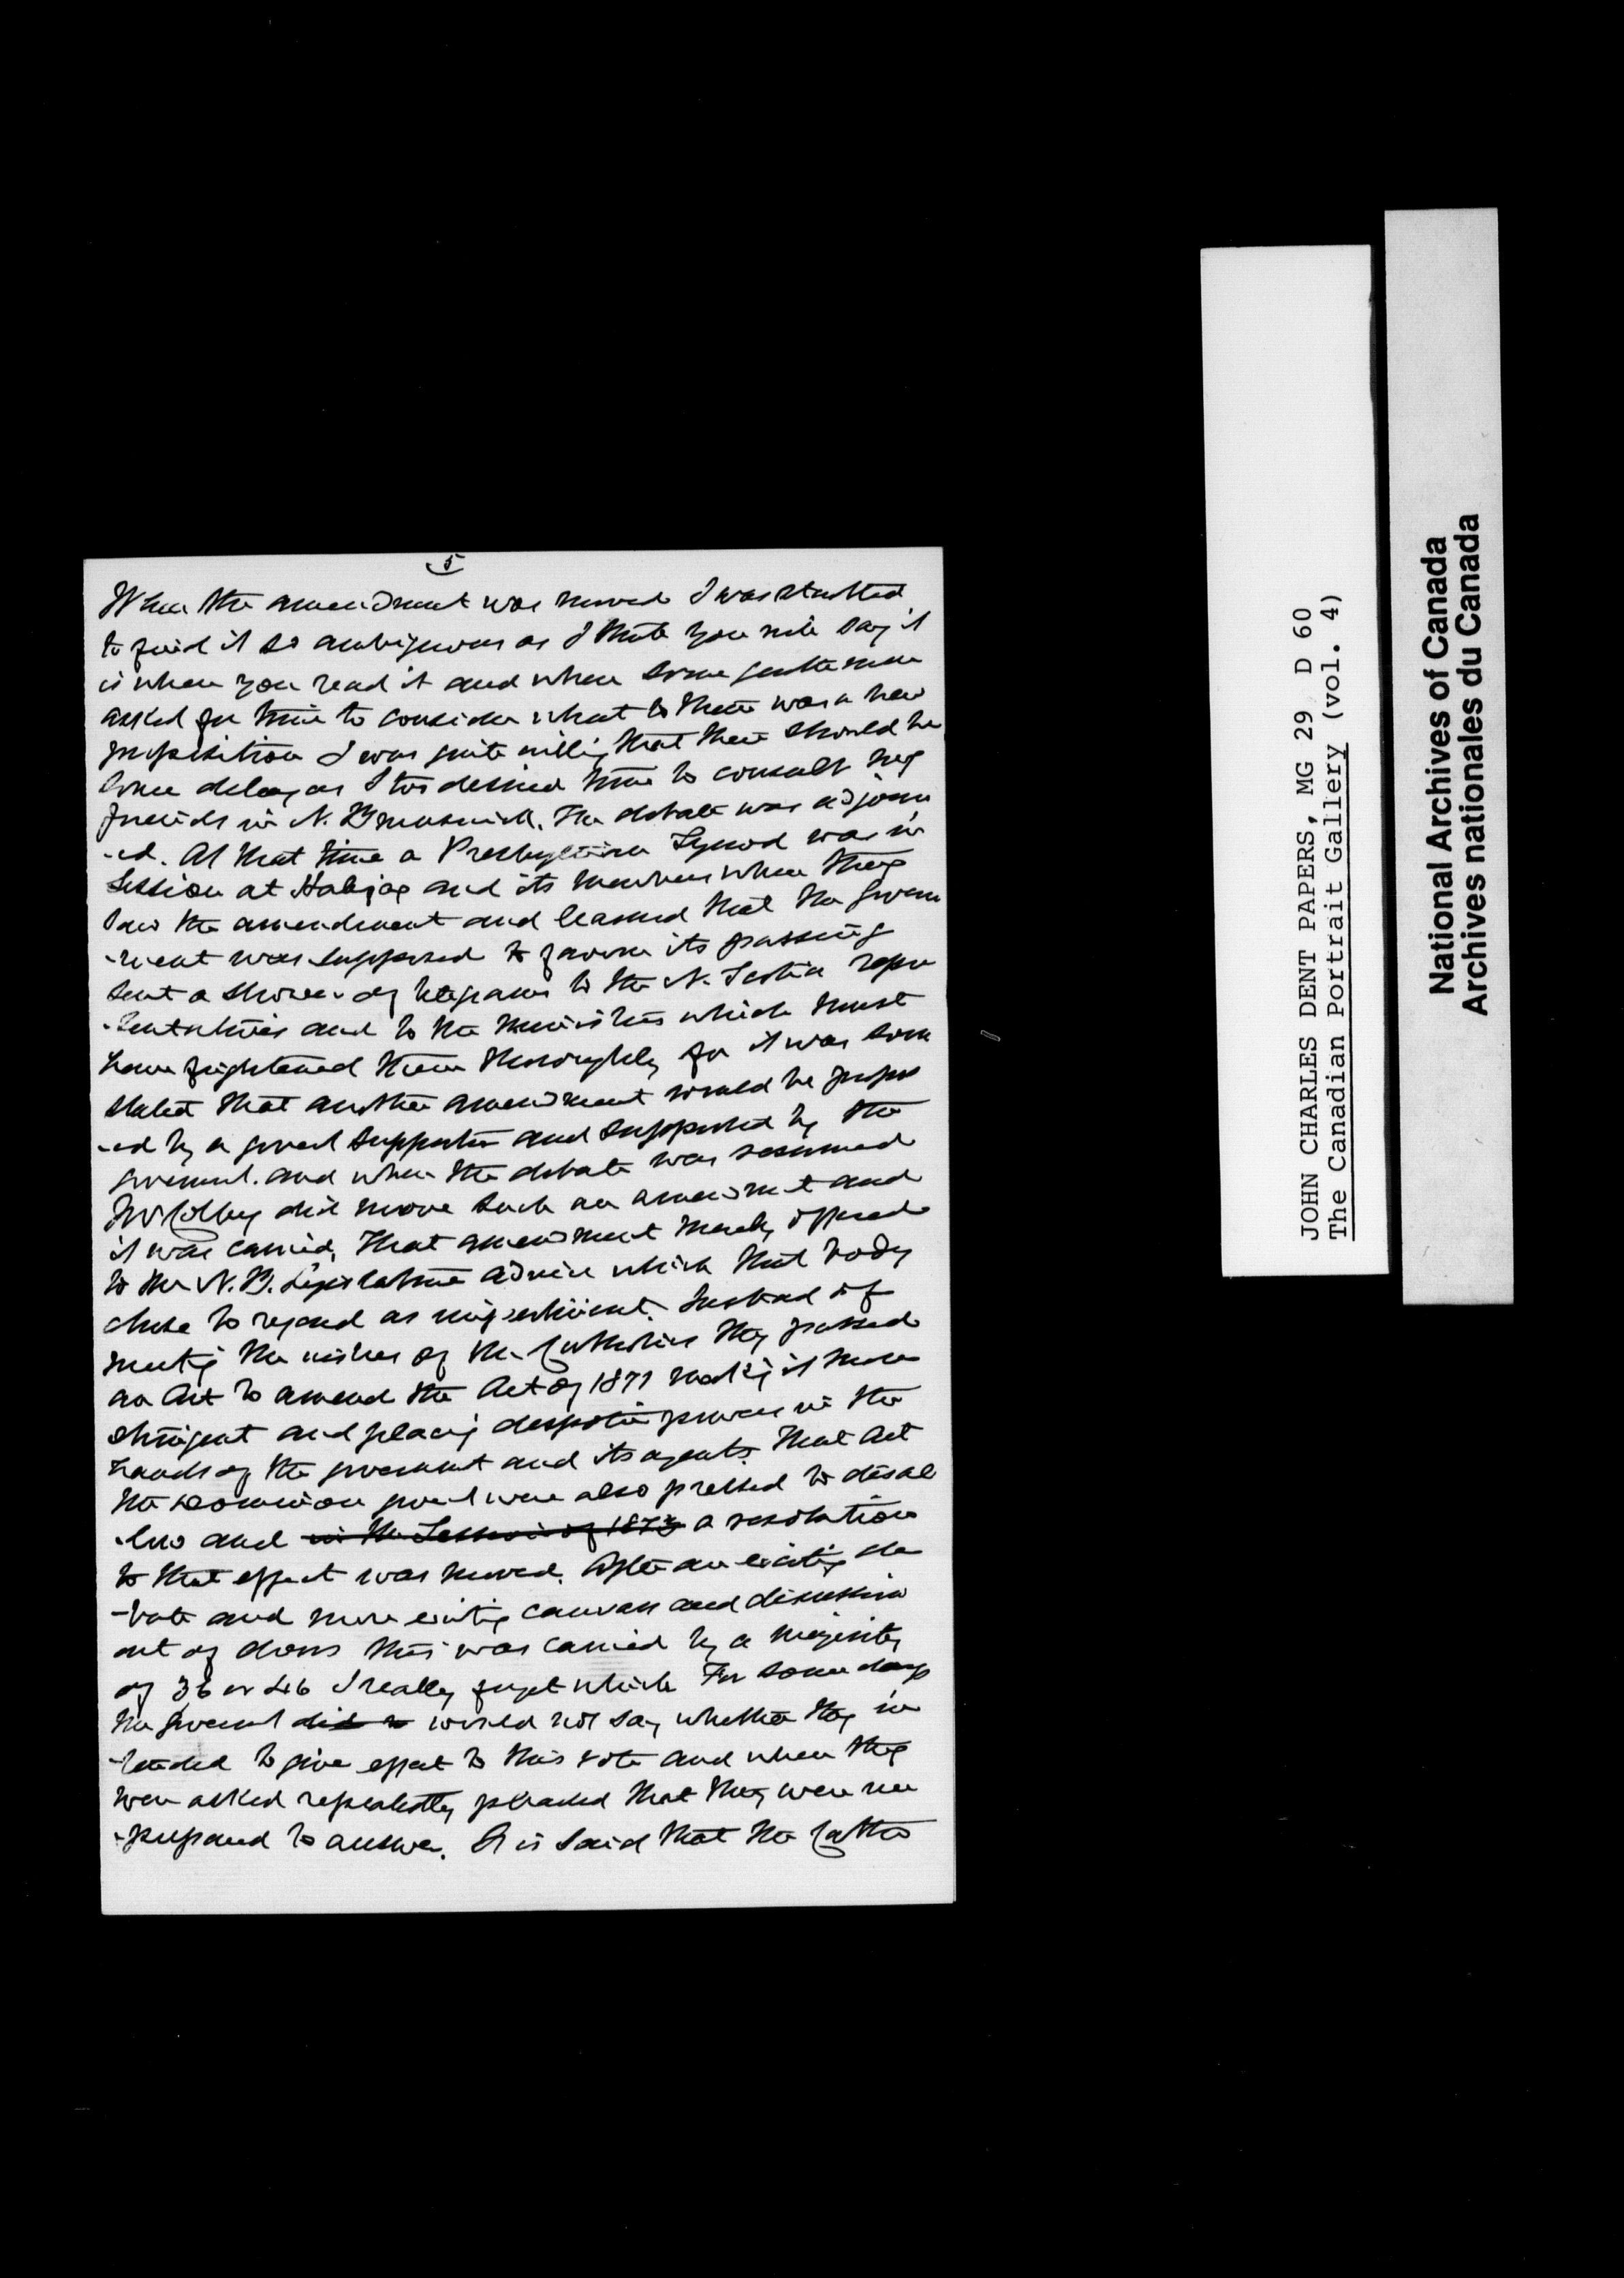 5
When the amendment was moved I was startled
to find it so ambiguous as I think you will say it
is when you read it and when some gentlemen
asked for time to consider what to them was a new
proposition I was quite willing that there should be
some delay as I too desired time to consult my
friends in N. Brunswick. The debate was adjourn
-ed. At that time a Presbyterian Synod was in
Session at Halifax and its members when they
saw the amendment and learned that the Govern
-ment was supposed to favour its passing
sent a shower of telegrams to the N. Scotia repre
-sentatives and to the Ministers which must
have frightened them thoroughly for it was soon
stated that another amendment would be propos
-ed by a Govent supporter and supported by the
Government. and when the debate was resumed
Mr Colby did move such an amendment and
it was carried. That amendment merely offered
to the N. B. Legislature advice which that body
chose to regard as impertinent. Instead of
meeting the wishes of the Catholics they passed
an Act to amend the Act of 1871 making it more
stringent and placing despotic powers in the
hands of the government and its agents. That Act
the Dominion govent were also pressed to disal
-low and in the Session of 1873 a resolution
to that effect was moved. After an exciting de
-bate and more exciting canvass and discussion
out of doors this was carried by a majority
of 36 or 46 I really forget which For some days
the Goverent did n would not say whether they in
-tended to give effect to this vote and when they
were asked repeatedly pleaded that they were un
-prepared to answer. It is said that the Catho
JOHN CHARLES DENT PAPERS, MG 29 D 60
The Canadian Portrait Gallery (vol. 4)
National Archives of Canada
Archives nationales du Canada